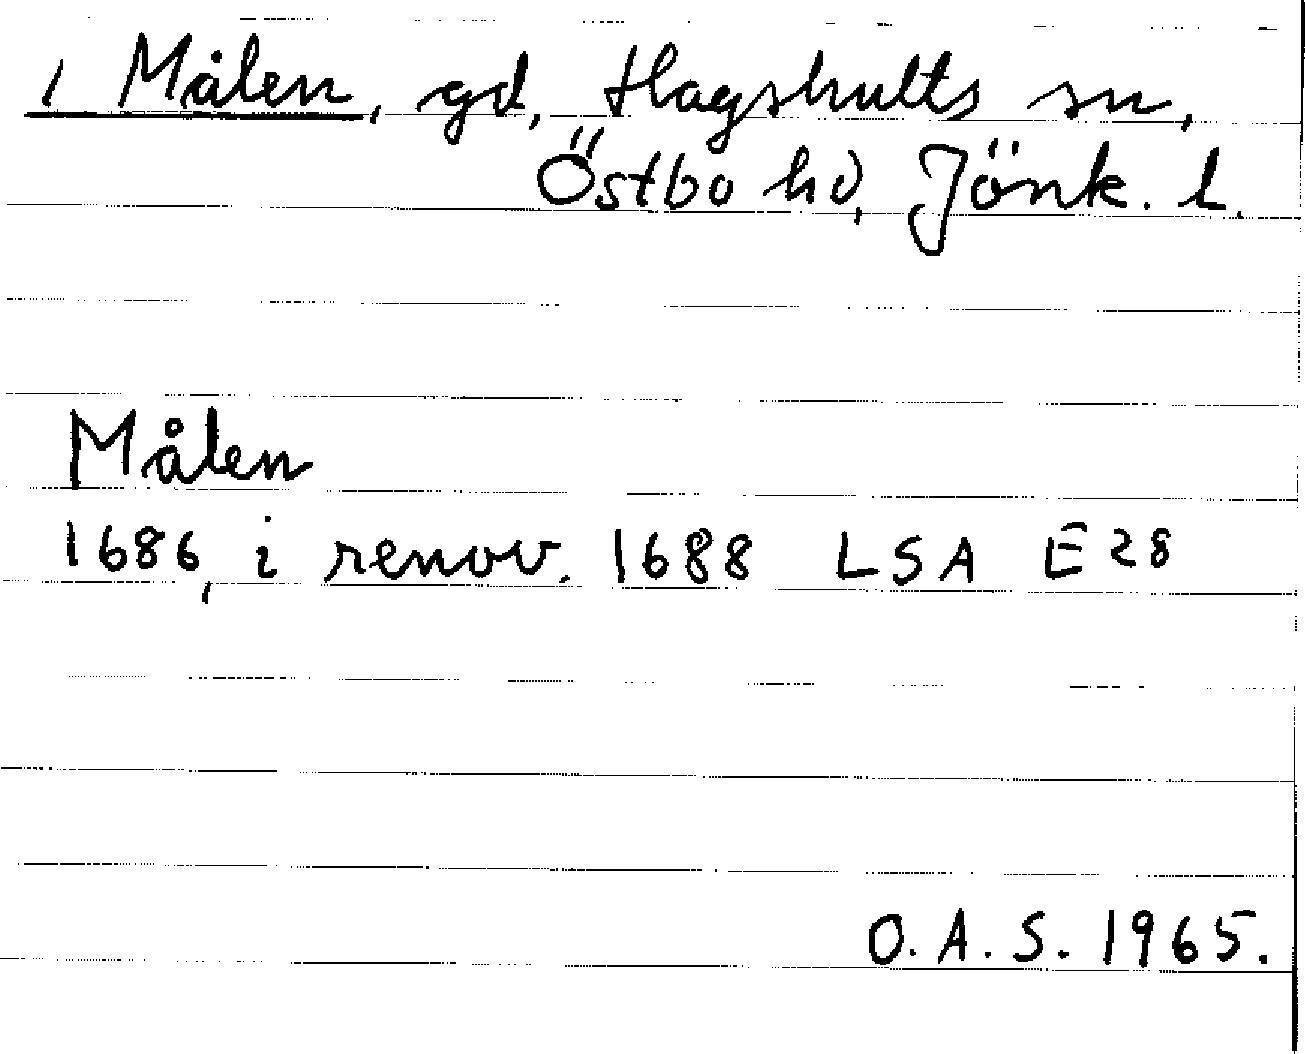 1 Målen, gd, Hagshults sn,
Östbo hd, Jönk. l.
Målen
1686, i renov. 1688 LSA E28
O.A.S. 1965.